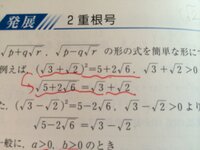 発展 2重根号
√p+q√r, √p−q√r の形の式を簡単な形に
例えば, (√3+√2)²=5+2√6, √3+√2>0
√5+2√6=√3+√2
た, (√3−√2)²=5−2√6, √3−√2>0 より
√5−2√6=√3−√2
一般に, a>0, b>0 のとき